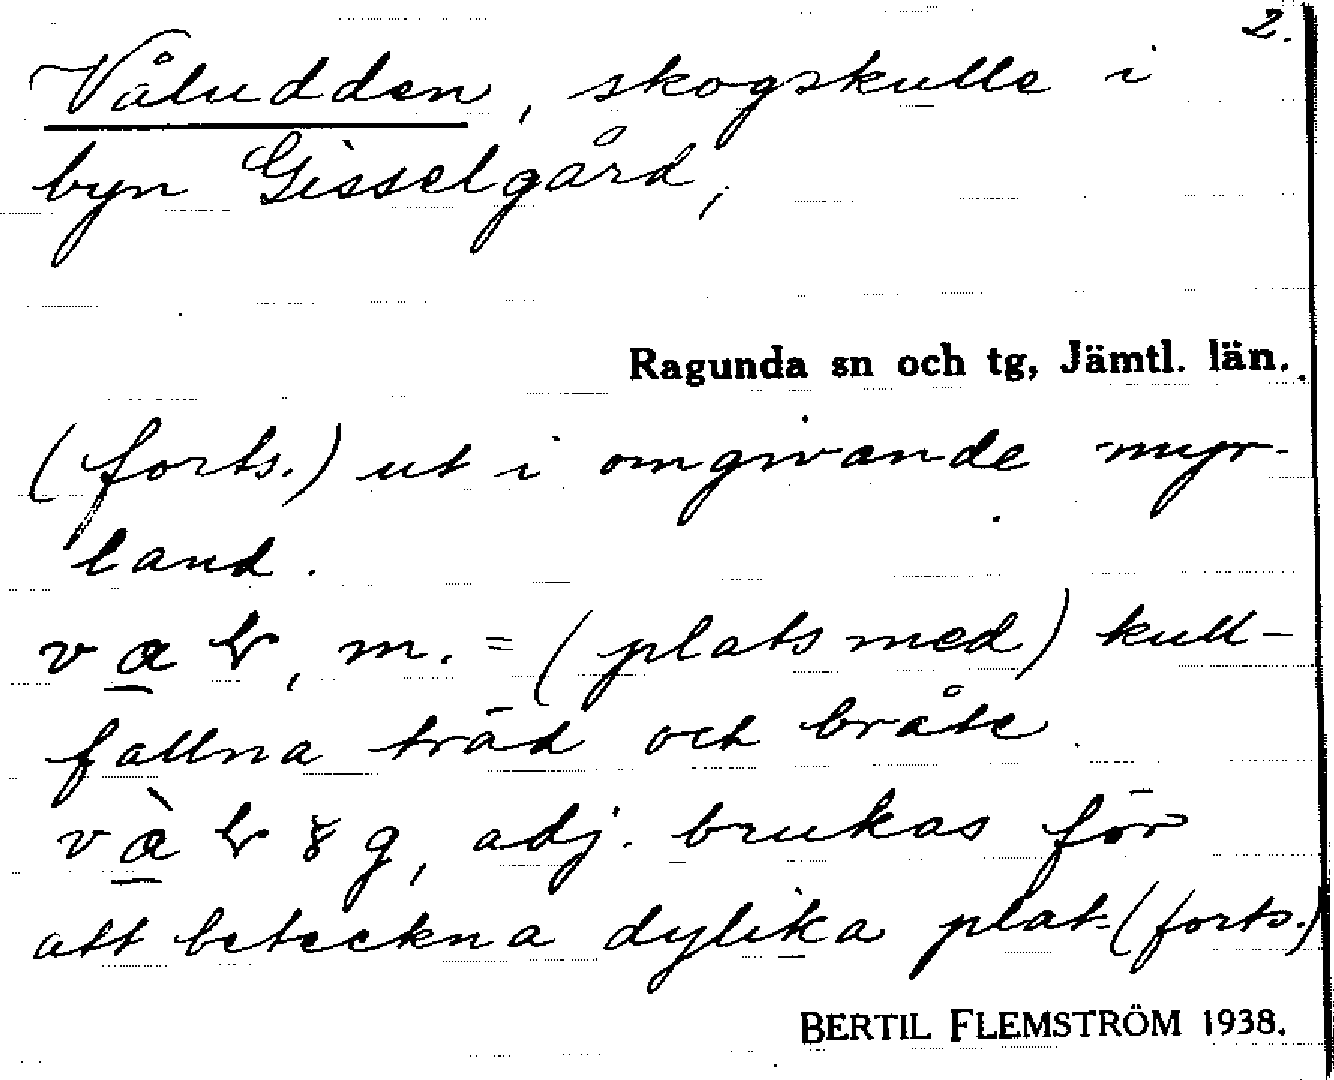 2.
Våludden, skogskulle i
byn Gisselgård,
Ragunda sn och tg, Jämtl. län.
(forts.) ut i omgivande myr-
land.
m. = (plats med) kull-
fallna träd och bråte
adj. brukas för
att beteckna dylika plat- (forts.)
BERTIL FLEMSTRÖM 1938.